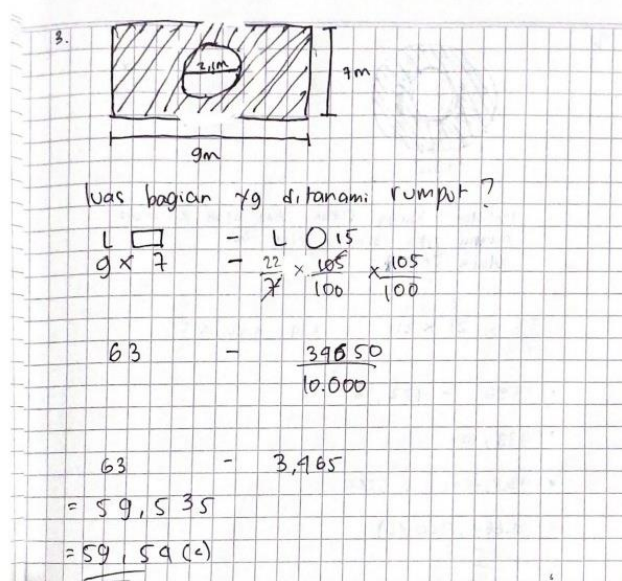 3.
2,1m
7m
9m
luas bagian yg ditanami rumput?
L ▭ - L ○ 15
9 × 7 - 22/7 × 105/100 × 105/100
63 - 34650/10.000
63 - 3,465
= 59,535
= 59,54 (c)